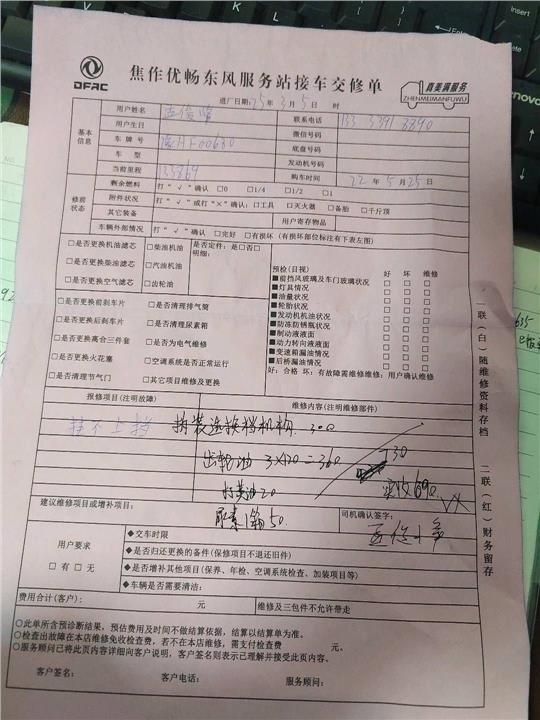 DFAC
焦作优畅东风服务站接车交修单
真美满服务
ZHENMEIMANFUWU
进厂日期:25年3月5日 时
基本信息
用户姓名 联系电话
用户生日 微信号码
车牌号 底盘号码
车型 发动机号码
当前里程 135869 购车时间 22年5月25日
修前状态
剩余燃料 打“√”确认 □0 □1/4 □1/2 □1
附件状况 打“√”或打“×”确认:□工具 □灭火器 □备胎 □千斤顶
其它装备 用户寄存物品
车辆外部情况 打“√”确认 □完好 □有损坏(有损坏部位标注有下表左图)
□是否更换机油滤芯 □柴油机油 是否定件:是□否□
明细:
□是否更换柴油滤芯 □汽油机油
□是否更换空气滤芯 □齿轮油
□是否更换前刹车片 □是否清理排气筒
□是否更换后刹车片 □是否清理尿素箱
□是否更换离合三件套 □是否为电气维修
□是否更换火花塞 □空调系统是否正常运行
□是否清理节气门 □其它项目维修及更换
预检(目视) 好 坏 维修
■前挡风玻璃及车门玻璃状况 □ □ □
■灯具情况 □ □ □
■油量状况 □ □ □
■轮胎状况 □ □ □
■发动机机油状况 □ □ □
■防冻防锈瓶状况 □ □ □
■制动液液面 □ □ □
■动力转向液液面 □ □ □
■变速箱漏油情况 □ □ □
■后桥漏油情况 □ □ □
好:合格 坏:有故障需维修维修:用户确认维修
报修项目(注明故障) 维修内容(注明维修部件)
挂不上挡 拆装选换档机构 300
齿轮油 3×120=360 730
打黄油 20 实收690
尿素1箱 50
建议维修项目或增补项目: 司机确认签字:
用户要求
□有 □无
◆交车时限
◆是否归还更换的备件(保修项目不退还旧件)
◆是否增补其他项目(保养、年检、空调系统检查、加装项目等)
◆车辆是否需要清洁:
费用合计(客户): 元 维修及三包件不允许带走
○此单所含预诊断结果、预估费用及时间不做结算依据,结算以结算单为准。
○检查出故障在本店维修免收检查费,若不在本店维修,需支付检查费 元。
○服务顾问已将此页内容详细向客户说明,客户签名则表示已理解并接受此页内容。
客户签名: 客户电话: 服务顾问:
一联(白)随维修资料存档
二联(红)财务留存